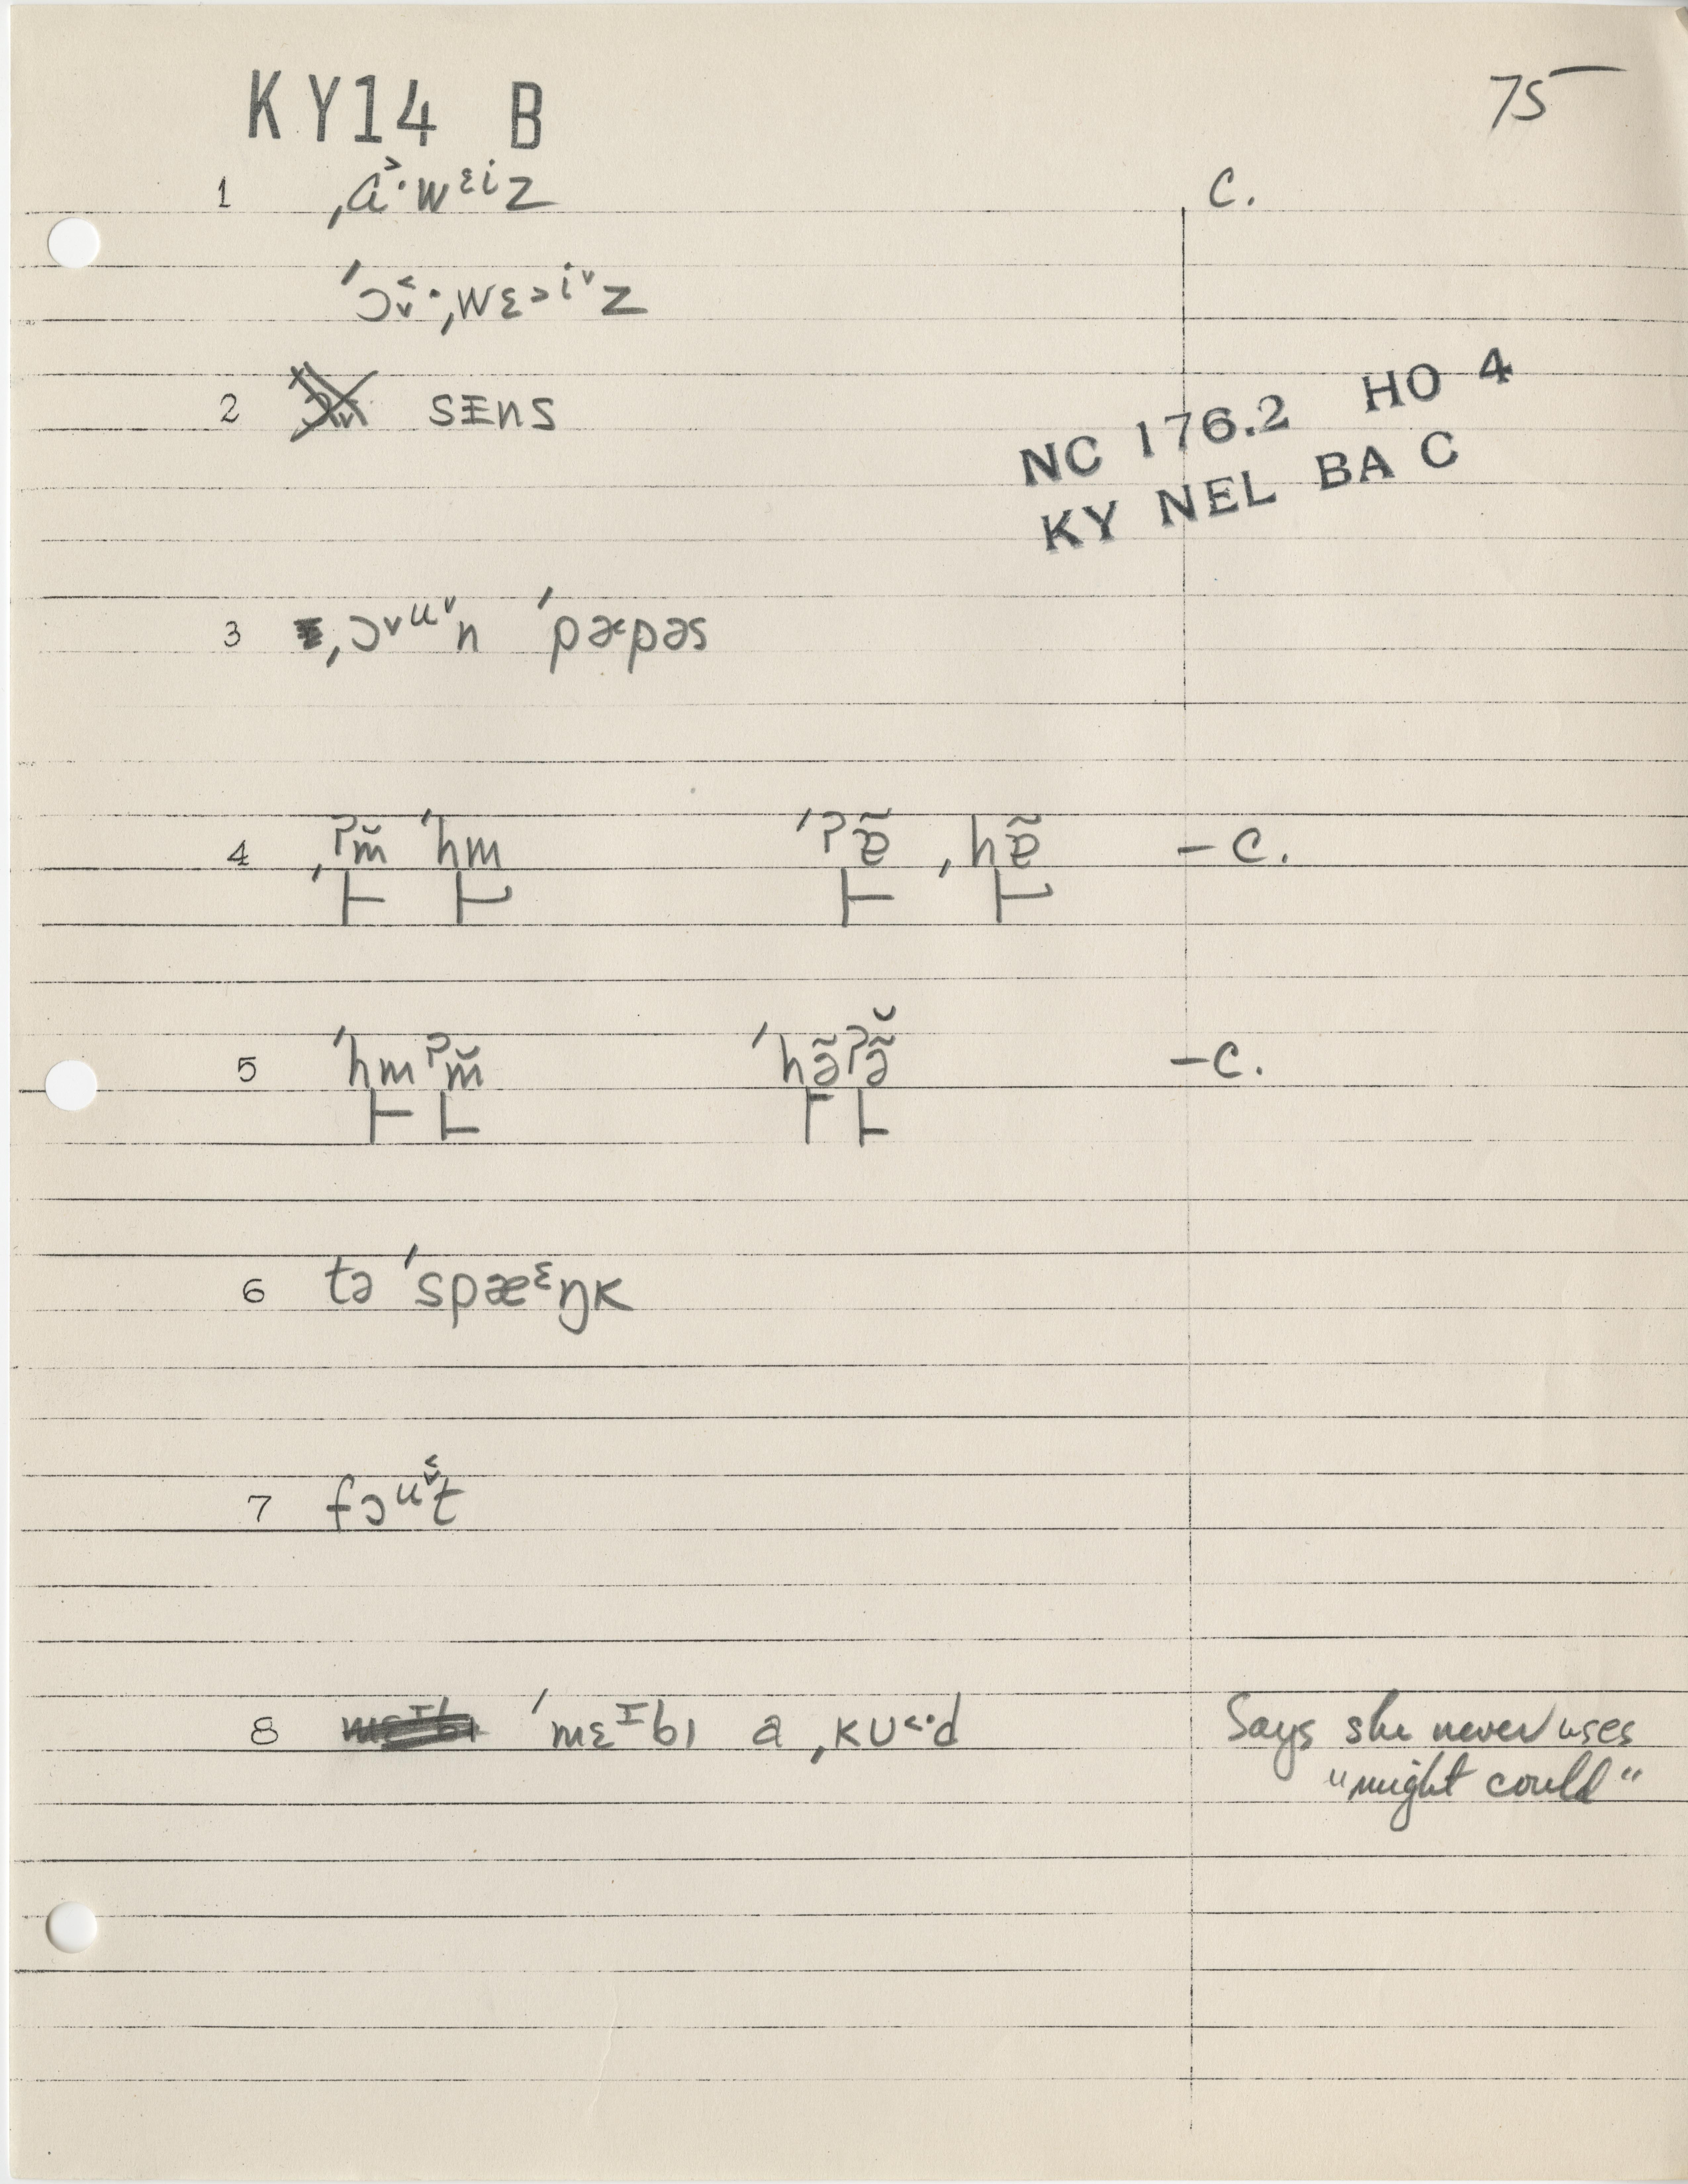 KY14 B 75
1 ˌɑ˃·wᵋⁱz C.
ˈɔ˂˅·ˌwɛ˃ⁱ˅z
NC 176.2 HO 4
2 sɛns
KY NEL BA C
3 ˌɔ˅ᵘ˅n ˈpɝpəs
4 ˌʔm̆ ˈhm ˈʔə̃ ˌhə̃ – C.
5 ˈhmʔm̆ ˈhə̃ʔə̃̆ – C.
6 tə ˈspæᵋŋk
7 fɔᵘ˂˅t
8 ˈmɛᶦbɪ a ˌkU˂·d Says she never uses
"might could"